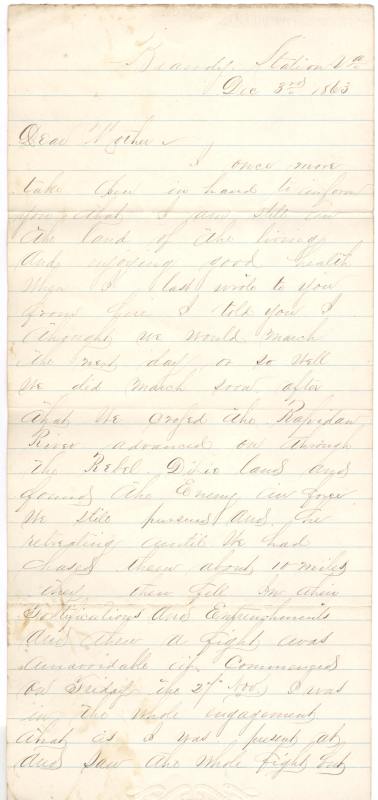 Brandy Station Va
Dec 3rd 1863
Dear Mother
I once more
take pen in hand to inform
you that I am still in
the land of the living
And enjoying good health
When I last wrote to you
from here I told you I
thought we would march
the next day or so Well
We did march soon after
that We crossed the Rapidan
River advanced on through
the Rebel Dixie land and
found the Enemy in force
We still pursued And the
retreating until We had
chased them about 10 miles
then they fell in their
Fortifycations And Entrenchments
And then a fight was
unavoidable it Commenced
on Friday the 27th Nov I was
in the whole engagement
that is I was present at
And saw the whole fight but